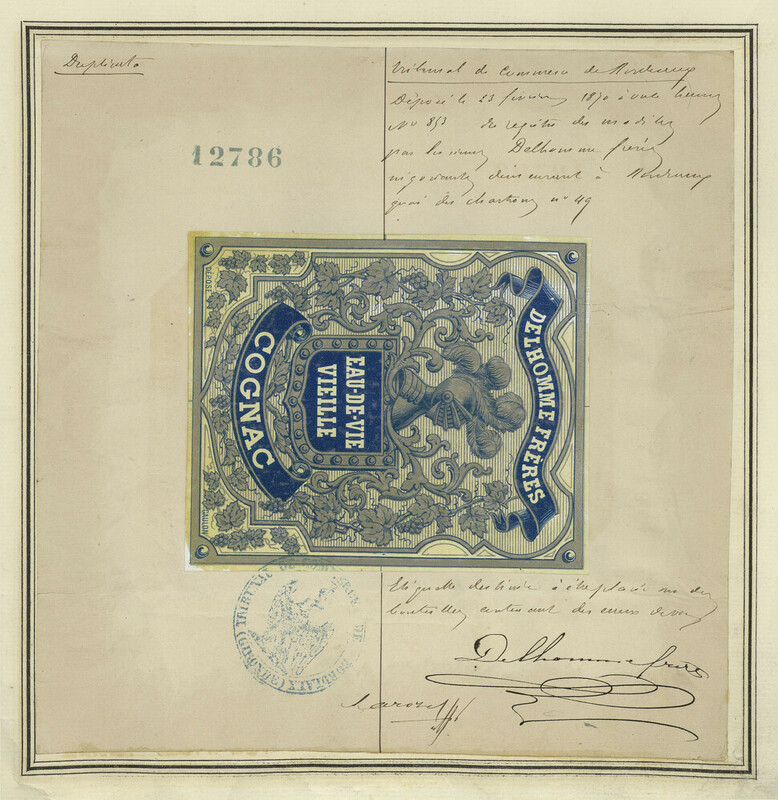 Duplicata
12786
Tribunal de Commerce de Bordeaux
Déposé le 23 février 1870 à onze heures
No 853 du registre des modèles
par les sieurs Delhomme frères
négociants, demeurant à Bordeaux
quai des Chartrons no 49
DÉPOSÉ
DELHOMME FRERES
EAU-DE-VIE
VIEILLE
COGNAC
Etiquette destinée à être placée sur des
bouteilles contenant des eaux de vie
TRIBUNAL DE COMMERCE DE BORDEAUX (GIRONDE)
Delhomme frères